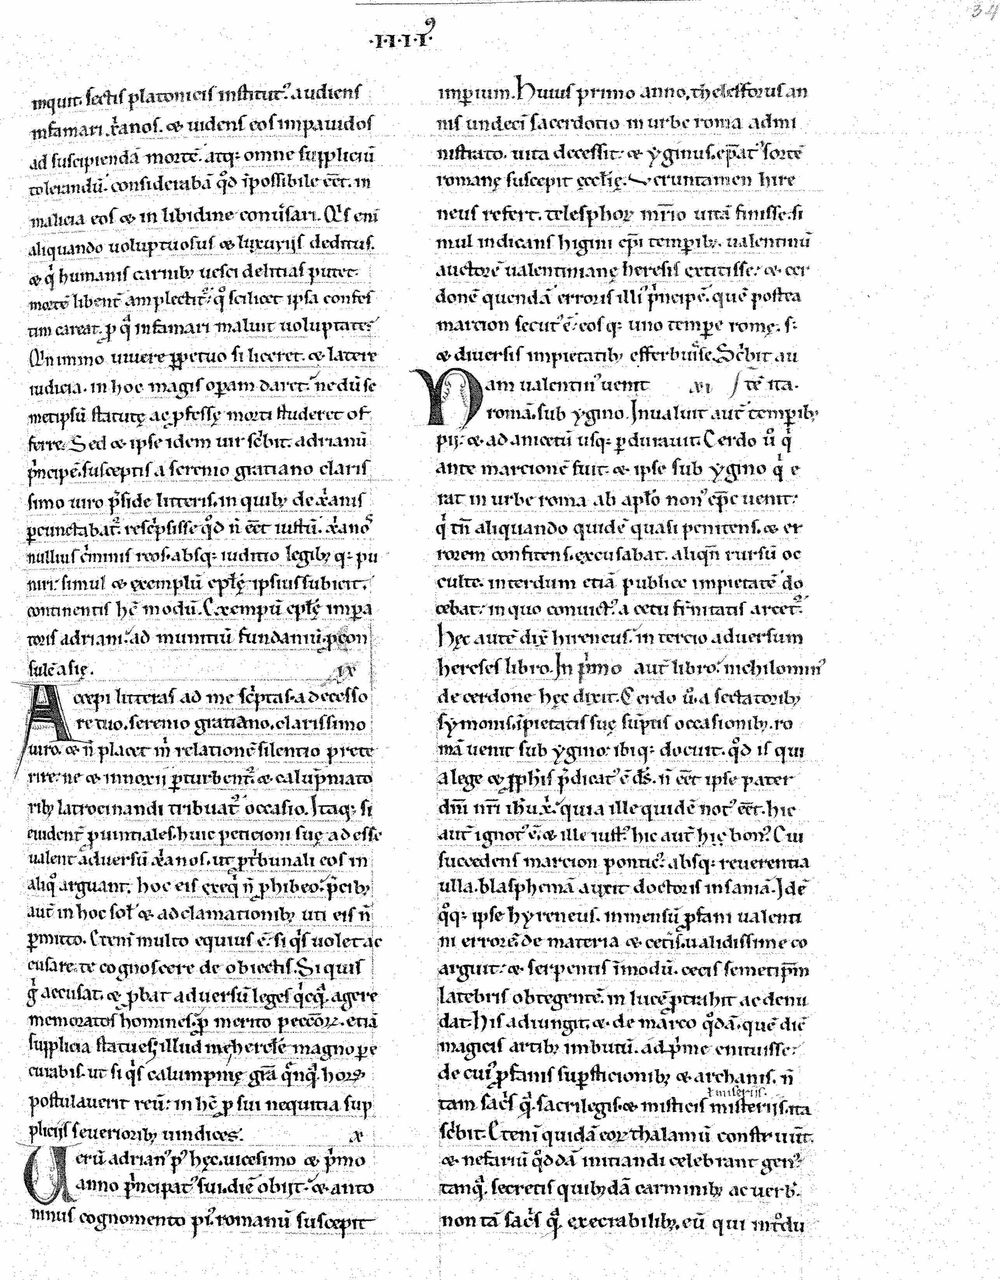 34
·IIII·
inquit. sectis platonicis institut᷒. audiens
infamari. xp̄ianos. & uidens eos impauidos
ad suscipiendā mortē. atq; omne suppliciū
tolerandū. considerabā qd̄ īpossibile eēt. in
malicia eos & in libidine conuersari. Qͥs enī
aliquando uoluptuosus & luxuriis deditus.
& qͥ humanis carnib; uesci delitias putet.
mortē libent̄ amplectit᷒. qͦ scilicet ipsa confes
tim careat. ꝑ qͣ infamari maluit uoluptate᷒
An immo uiuere ꝑpetuo si liceret. & latere
iudicia. in hoc magis oꝑam daret. ne dū se
metipsū statutę ac ꝓfessę morti studeret of
ferre. Sed & ipse idem uir sc̄bit. adrianū
pͥncipē. susceptis a serenio gratiano claris
simo uiro p̄side litteris. in quib; de xp̄ianis
ꝑcunctabat᷒. resc̄psisse qd̄ n̄ eēt iustū. xp̄ianos
nullius cͥminis reos. absq; iuditio legib; q; pu
niri. simul & exemplū ep̄lę ipsius subicit.
continentis hc̄ modū. Exempū ep̄lę impa
toris adriani. ad munitiū fundanū. ꝓcon
sulē asię. ix
Accepi litteras ad me sc̄ptas. a decesso
re tuo. serenio gratiano. clarissimo
uiro. & n̄ placet m̄ relationē silentio prete
rire. ne & innoxii ꝑturbent᷒. & calupniato
rib; latrocinandi tribuat᷒ occasio. Itaq; si
euident̄ ꝓuintiales. huic peticioni suę ad esse
ualent aduersū xp̄ianos. ut ꝓ tribunali eos in
aliqͦ arguant. hoc eis exeqͥ n̄ ꝓhibeo. p̄cib;
aut̄ in hoc sol᷒ & adclamationib; uti eis n̄
ꝑmitto. Eteni multo equius ē. si qͥs uolet ac
cusare. te cognoscere de obiectis. Si quis
gͦ accusat. & ꝓbat aduersū leges qͥcqͣ agere
memoratos homines. ꝓ merito peccatoꝝ. etiā
supplicia statues. illud mehercle magnope
curabis. ut si qͥs calumpnię gr̄a quēqͣ horꝫ
postulauerit reū. in hc̄ ꝓ sui nequitia sup
pliciis seuerioribus uindices. x
Uerū adrian᷒ p᷒ hęc. uicesimo & pͥmo
anno pͥncipat᷒ sui. diē obiit. & anto
ninus cognomento pi᷒. romanū suscepit
imꝑium. Huius primo anno, thelesforus an
nis undeci sacerdotio in urbe roma admi
nistrato. uita decessit. & yginus. ep̄at᷒ sortē
romanę suscepit ecclię. Veruntamen hire
neus refert. telesphoꝝ mr̄io uitā finisse. si
mul indicans higini ep̄i temporib;. ualentinū
auctorē ualentinianę heresis extitisse. & cer
donē quendā erroris illi᷒ pͥncipē. quē postea
marcion secut᷒ ē. eos q; uno tempe romę. s;
& diuersis impietatib; efferbuisse. Scͥbit au
tē ita. xi
Nam ualentin᷒ uenit
romā. sub ygino. Inualuit aut̄ temporib;
pii. & ad anicetū usq; ꝑdurauit. Cerdo ū qͥ
ante marcionē fuit. & ipse sub ygino qͥ e
rat in urbe roma ab apl̄o non᷒ ep̄c uenit.
qͥ tn̄ aliquando quidē quasi penitens. & er
rorem confitens. excusabat. aliqn̄ rursū oc
culte. interdum etiā publice impietatē do
cebat. in quo conuict᷒. a cetu fr̄nitatis arcet᷒.
Hęc autē dix̄ hireneus. in tercio aduersum
hereses libro. In pͥmo aut̄ libro. nichilomin᷒
de cerdone hęc dixit. Cerdo ū. a sectatorib;
symonis. īpietatis suę sūptis occasionib;. ro
mā uenit sub ygino. ibiq; docuit. qd̄ is qui
a lege & ꝓphis p̄dicat᷒ ē ds̄. n̄ eēt ipse pater
dn̄i nr̄i ihū xp̄i. quia ille quidē not᷒ eēt. hic
aut̄ ignot᷒ ē. & ille iust᷒. hic aut̄ hic bon᷒. Cui
succedens marcion pontic᷒. absq; reuerentia
ulla. blasphemā auxit doctoris insaniā. Idē
qͦq; ipse hyreneus. inmensū ꝓfani ualenti
ni errorē. de materia & cetis. ualidissime co
arguit. & serpentis īmodū. cecis semetip̄m
latebris obtegentē. in lucē ꝓtrahit ac denu
dat. His adiungit. & de marco qͦdā. quē diē
magicis artib; imbutū. adpͥme enituisse.
de cui᷒ ꝓfanis suꝑsticionib; & archanis. n̄
tam sacͥs qͣ sacrilegis. & misticis misteriis. ita
ł miseriis.
scͥbit. Eteni quidā eoꝝ thalamū construūt.
& nefariū qͦddā initiandi celebrant gen᷒.
tanqͣ secretis quib;dā carminib; ac uerb᷒.
non tā sacͥs qͣ execrabilib;. eū qui intͦdu